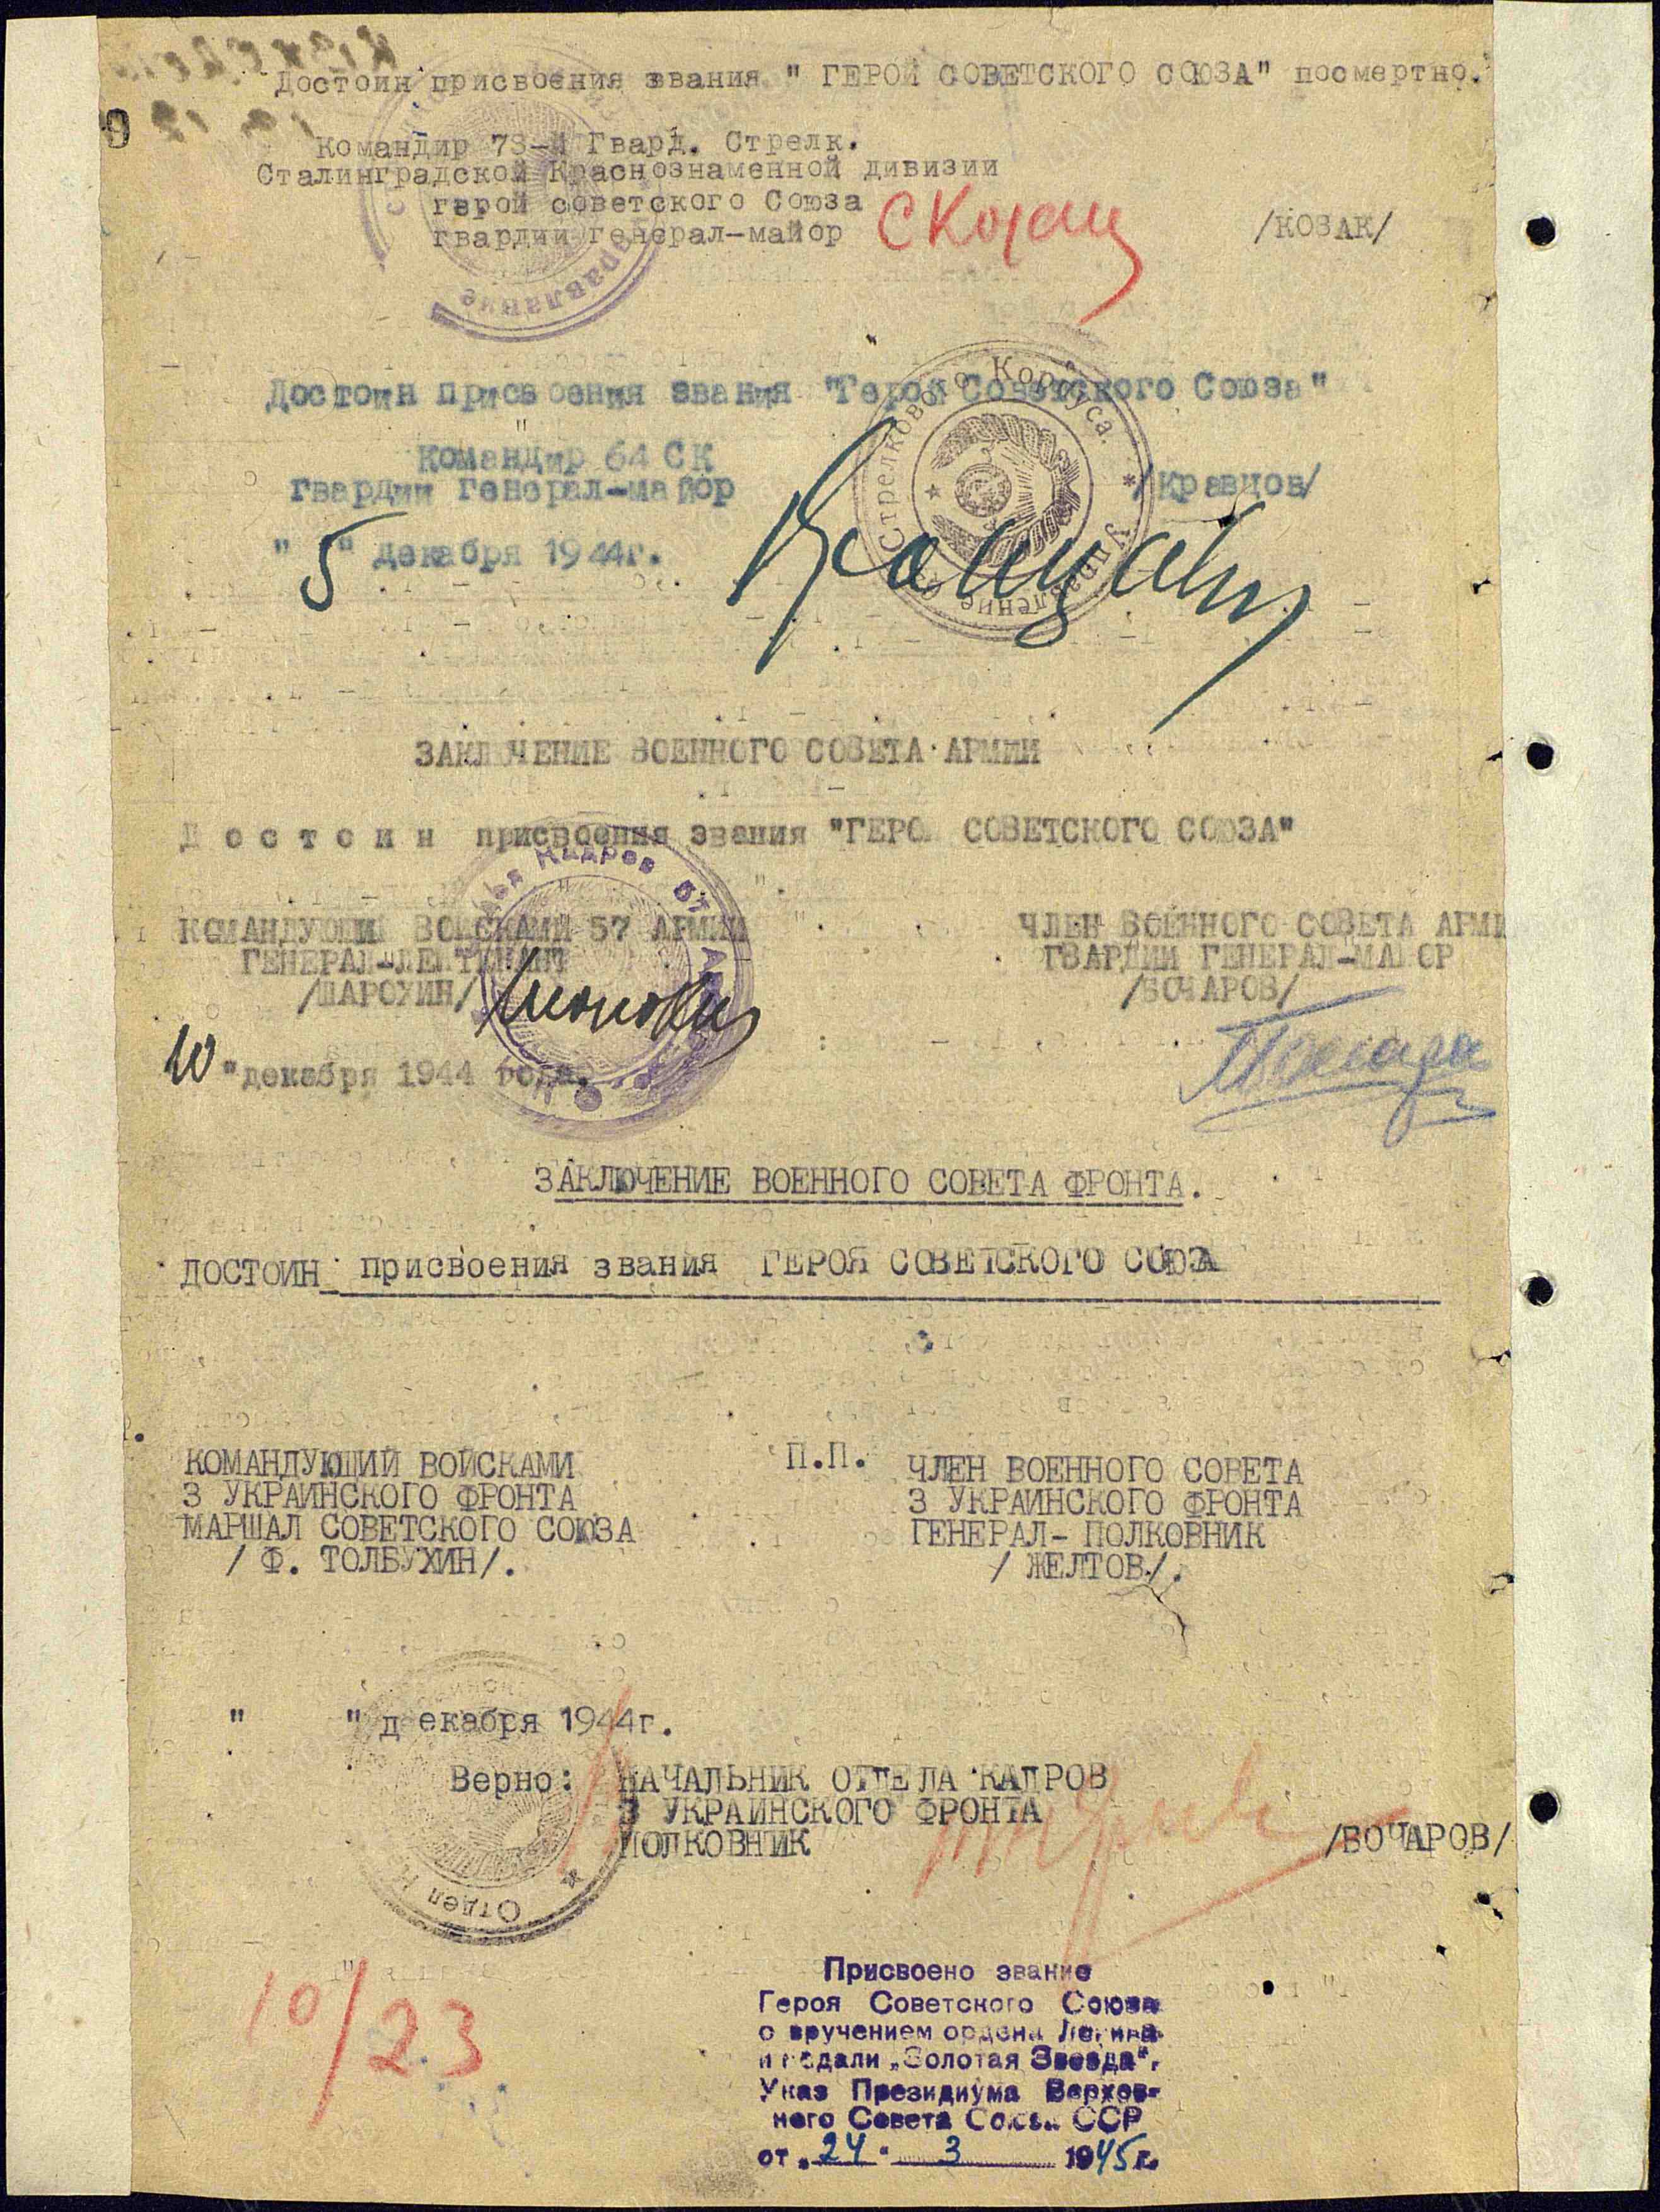 Достоин присвоения звания " ГЕРОЙ СОВЕТСКОГО СОЮЗА" посмертно.
Командир 73-й Гвард. Стрелк.
Сталинградской Краснознаменной дивизии
герой советского Союза
гвардии генерал-майор /КОЗАК/
управление
Достоин присвоения звания "Героя Советского Союза"
Командир 64 СК
гвардии генерал-майор /Кравцов/
Стрелкового Корпуса. * Управление
" 5 " декабря 1944г.
ЗАКЛЮЧЕНИЕ ВОЕННОГО СОВЕТА АРМИИ
Д о с т о и н присвоения звания "ГЕРО СОВЕТСКОГО СОЮЗА"
КОМАНДУЮЩИЙ ВОЙСКАМИ 57 АРМИИ
ГЕНЕРАЛ-ЛЕЙТЕНАНТ
/ШАРОХИН/
10 "декабря 1944 года.
ЧЛЕН ВОЕННОГО СОВЕТА АРМИ
ГВАРДИИ ГЕНЕРАЛ-МАЙОР
/БОЧАРОВ/
ЗАКЛЮЧЕНИЕ ВОЕННОГО СОВЕТА ФРОНТА.
ДОСТОИН присвоения звания ГЕРОЯ СОВЕТСКОГО СОЮЗА
КОМАНДУЮЩИЙ ВОЙСКАМИ
3 УКРАИНСКОГО ФРОНТА
МАРШАЛ СОВЕТСКОГО СОЮЗА
/ Ф. ТОЛБУХИН/.
П.П. ЧЛЕН ВОЕННОГО СОВЕТА
3 УКРАИНСКОГО ФРОНТА
ГЕНЕРАЛ- ПОЛКОВНИК
/ ЖЕЛТОВ/.
" " декабря 1944г.
Верно: НАЧАЛЬНИК ОТДЕЛА КАДРОВ
3 УКРАИНСКОГО ФРОНТА
ПОЛКОВНИК /БОЧАРОВ/
Отдел
10/23
Присвоено звание
Героя Советского Союза
с вручением ордена Ленина
и медали „Золотая Звезда",
Указ Президиума Верхов-
ного Совета Союза ССР
от „24" 3 1945 г.